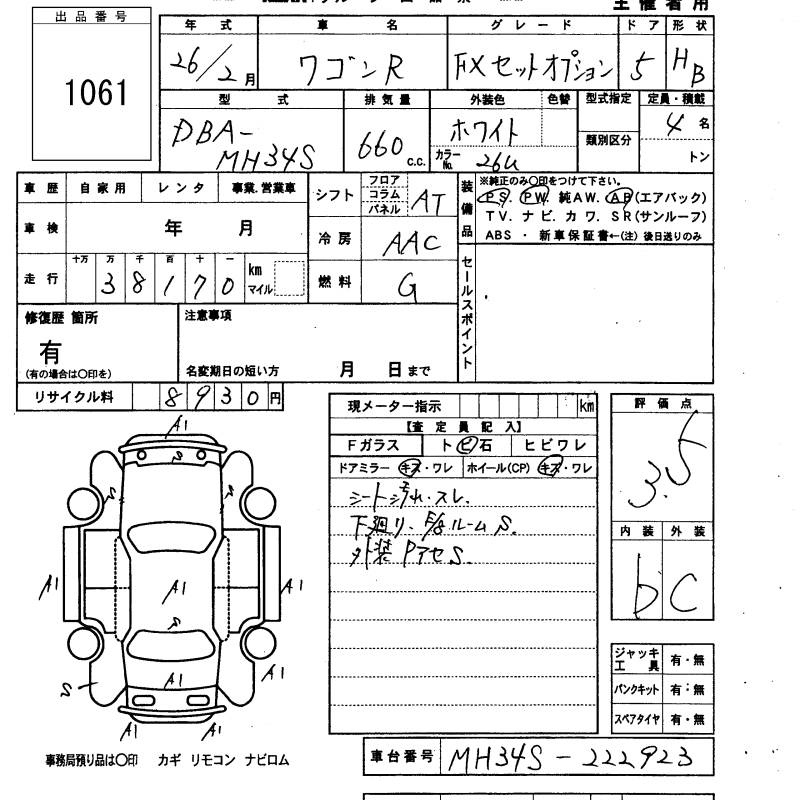 主催者用
出品番号
1061
年式 車名 グレード ドア 形状
26/2月 ワゴンR FXセットオプション 5 HB
型式 排気量 外装色 色替 型式指定 定員・積載
DBA-MH34S 660 c.c. ホワイト 4名
カラーNo. 26U 類別区分 トン
車歴 自家用 レンタ 事業.営業車 シフト フロア コラム パネル AT
装備品 ※純正のみ○印をつけて下さい。
PS. PW. 純AW. AB(エアバック)
TV. ナビ. カワ. SR(サンルーフ)
ABS ・ 新車保証書←(注) 後日送りのみ
車検 年 月 冷房 AAC
走行 十万 万 千 百 十 一
38170 km マイル 燃料 G
セールスポイント
修復歴 箇所 注意事項
有
(有の場合は○印を) 名変期日の短い方 月 日まで
リサイクル料 8930円
現メーター指示 km
【査定員記入】
Fガラス トビ石 ヒビワレ
ドアミラー キズ・ワレ ホイール(CP) キズ・ワレ
シート汚れ・スレ.
下廻り、F/Rルーム S.
外装 Pアセ S.
評価点
3.5
内装 外装
b C
A1
S
S S
A1 A1 A1
S
S A1 A1
A1 A1
ジャッキ工具 有・無
パンクキット 有・無
スペアタイヤ 有・無
事務局預り品は○印 カギ リモコン ナビロム
車台番号 MH34S-222923